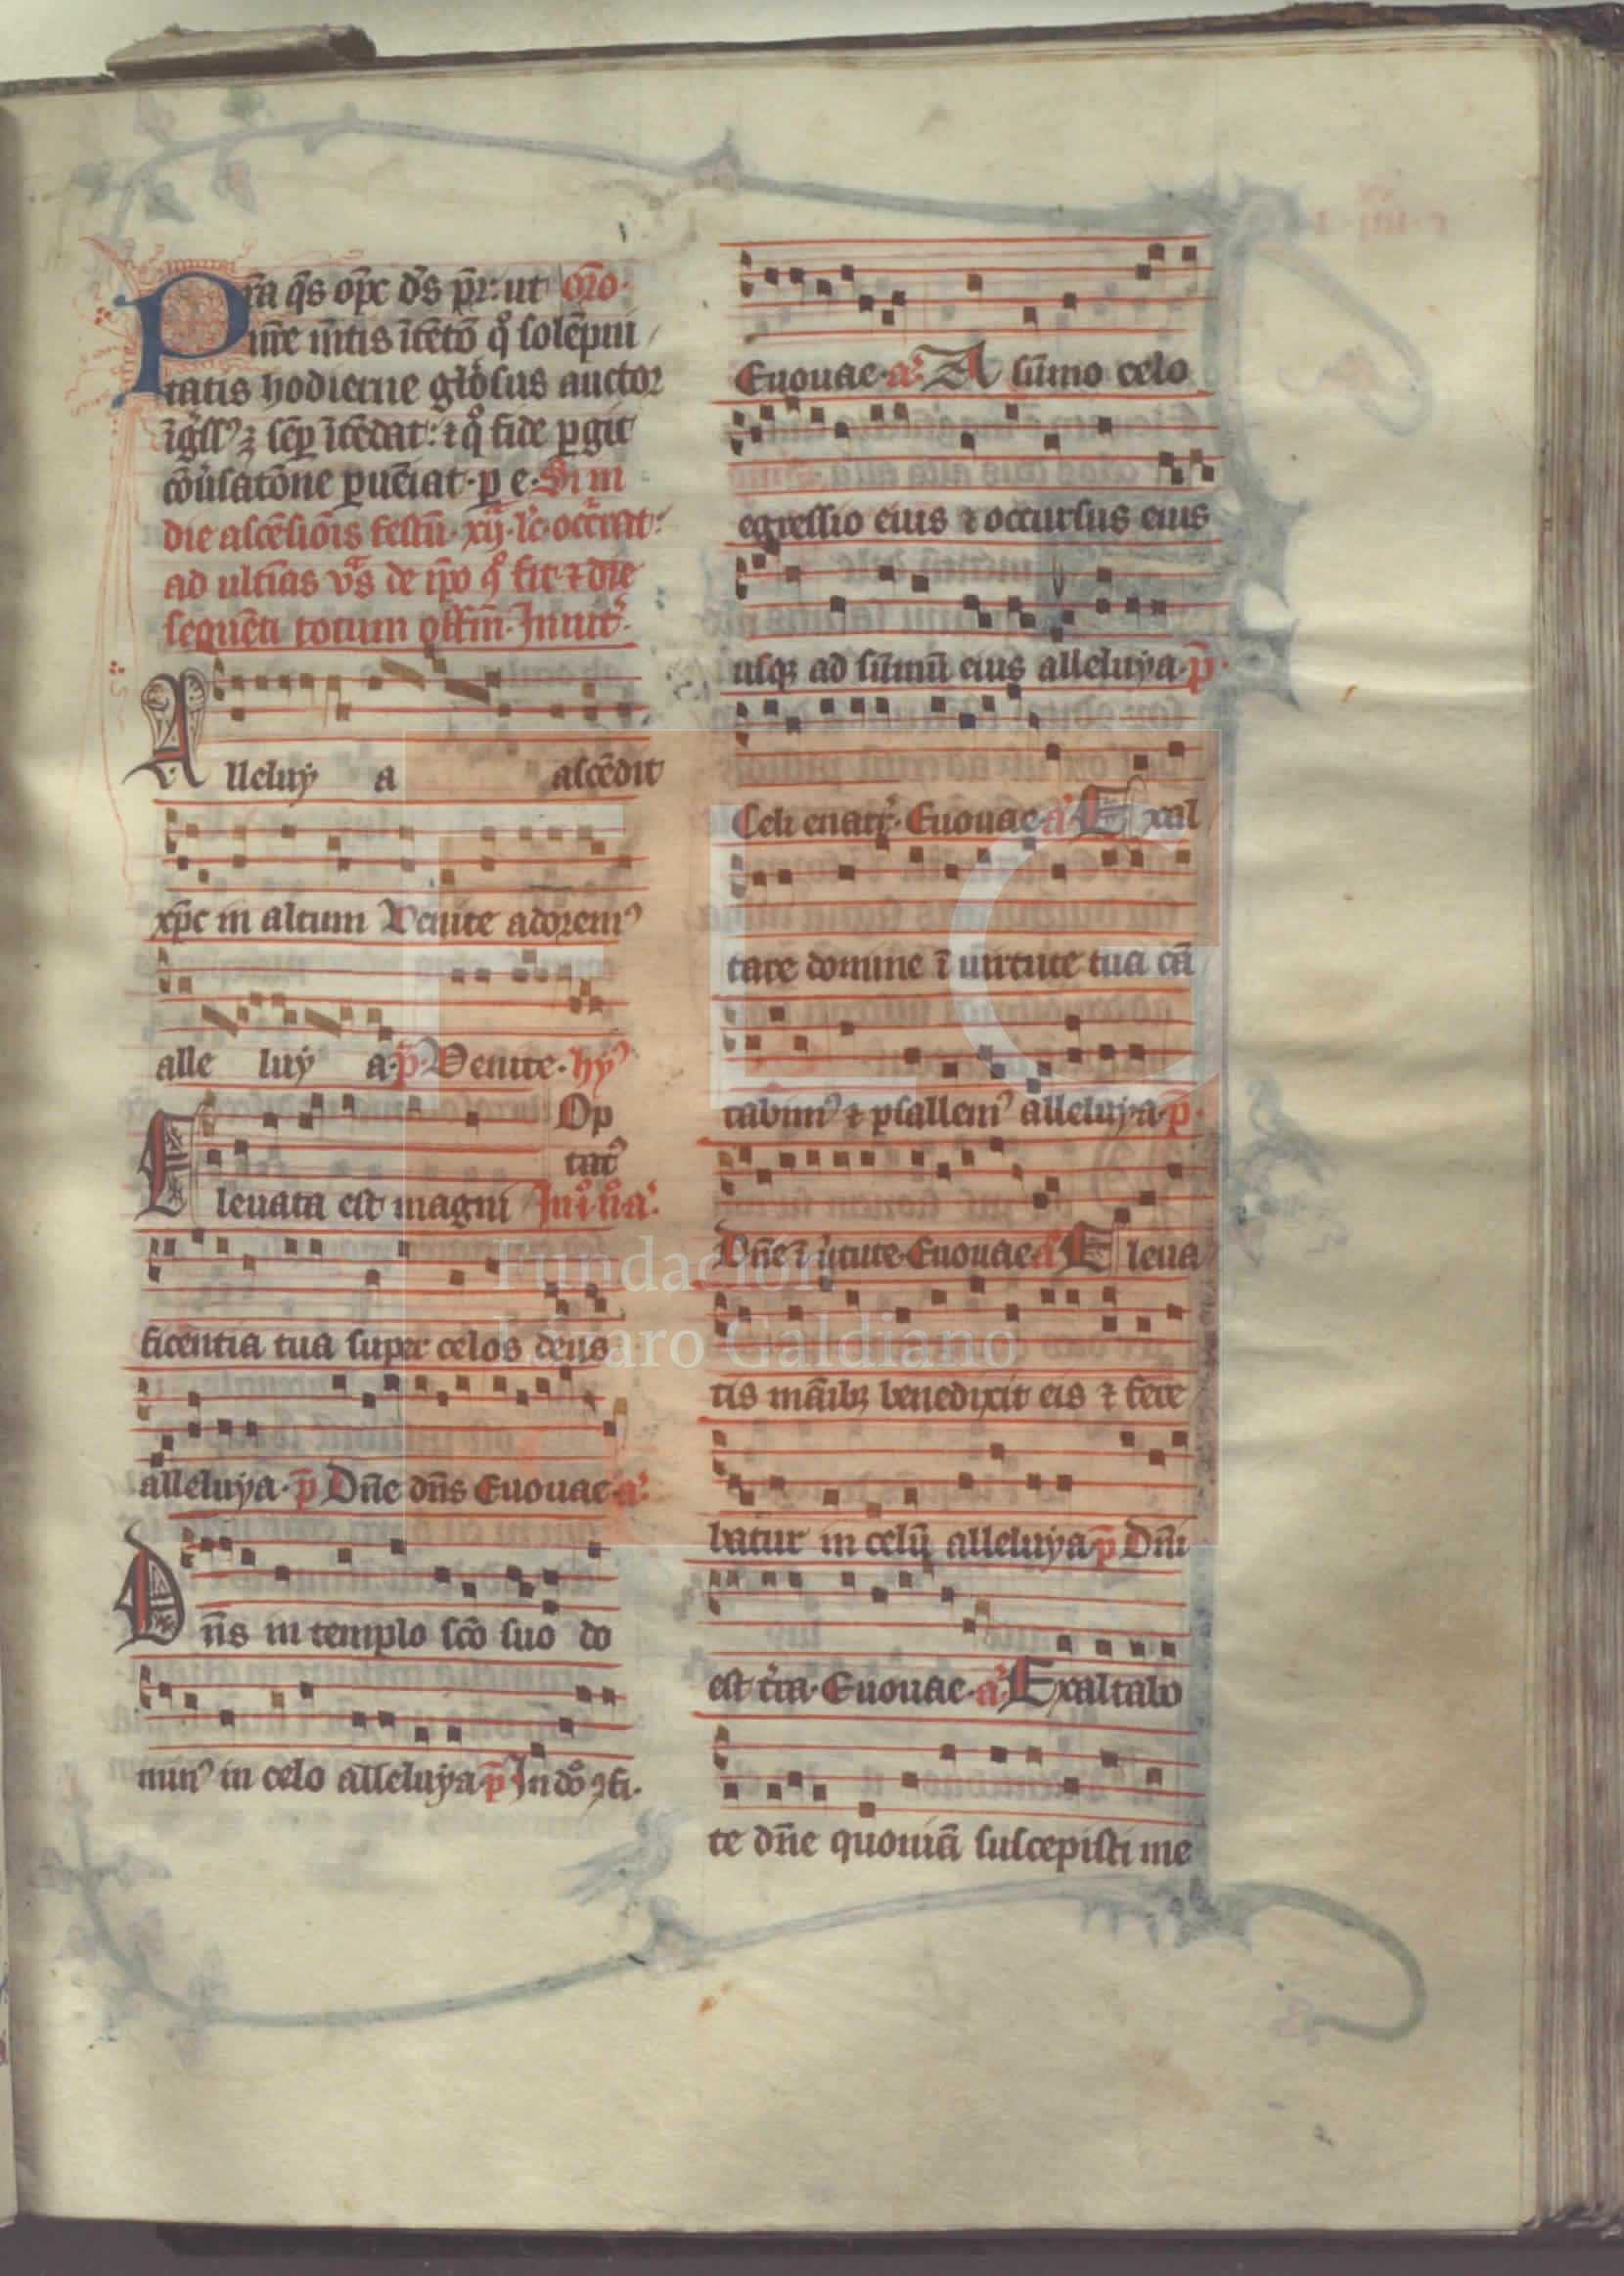 Pr̄a q̄s op̄c d̄s p̄r: ut or̄o.
nr̄e m̄tis ītētō q° solēpni
tatis hodierne gl̄osus auctor
īḡss⁹ ⁊ sēp ītēdat: ⁊ q° fide pgit
cōūsatōne pueīat. p e. Si in
die ascēsiōis festū. xij. lc̄. occ̄rrat:
ad ultīas v̄s de ip̄o q° fit ⁊ die
sequēti totum offm̄. Inuit.
Alleluy a ascēdit
xp̄c in altum Venite adorem⁹
alle luy a. p̄. Venite. hy⁹
Op
tat⁹
Eleuata est magni In i n̄ a.
ficentia tua super celos deus
alleluya. p̄ Dn̄e dn̄s Euouae. a.
Dn̄s in templo sc̄o suo do
min⁹ in celo alleluya. p̄ In dō ꝯfi.
Euouae. a. A sūmo celo
egressio eius ⁊ occursus eius
usqꝫ ad sūmū eius alleluya. p̄.
Celi enarr̄. Euouae. a. Exal
tare domine ī uirtute tua cā
tabim⁹ ⁊ psallem⁹ alleluya. p̄.
Dn̄e ī ūtute. Euouae. a. Eleua
tis māibꝫ benedixit eis ⁊ fere
batur in celū alleluya p̄ Dn̄i
est t̄ra. Euouae. a. Exaltabo
te dn̄e quoniā suscepisti me
Fundación
Lázaro Galdiano